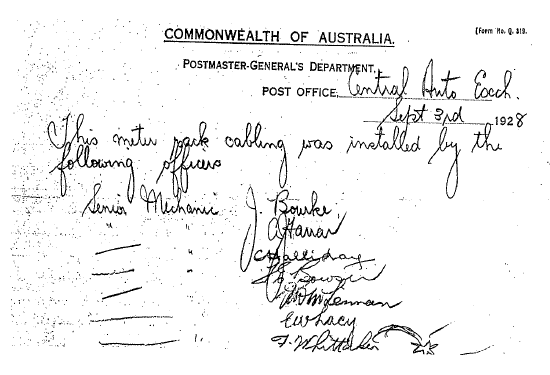 COMMONWEALTH OF AUSTRALIA.
(Form No. Q. 319.
POSTMASTER-GENERAL'S DEPARTMENT,
POST OFFICE, Central Auto Exch.
Sept 3rd 1928
This meter rack cabling was installed by the
following officers
Senior Mechanic J. Bourke
" A Hanan
" C Halliday
" Bowden
McLennan
Lacy
" F. Whittaker